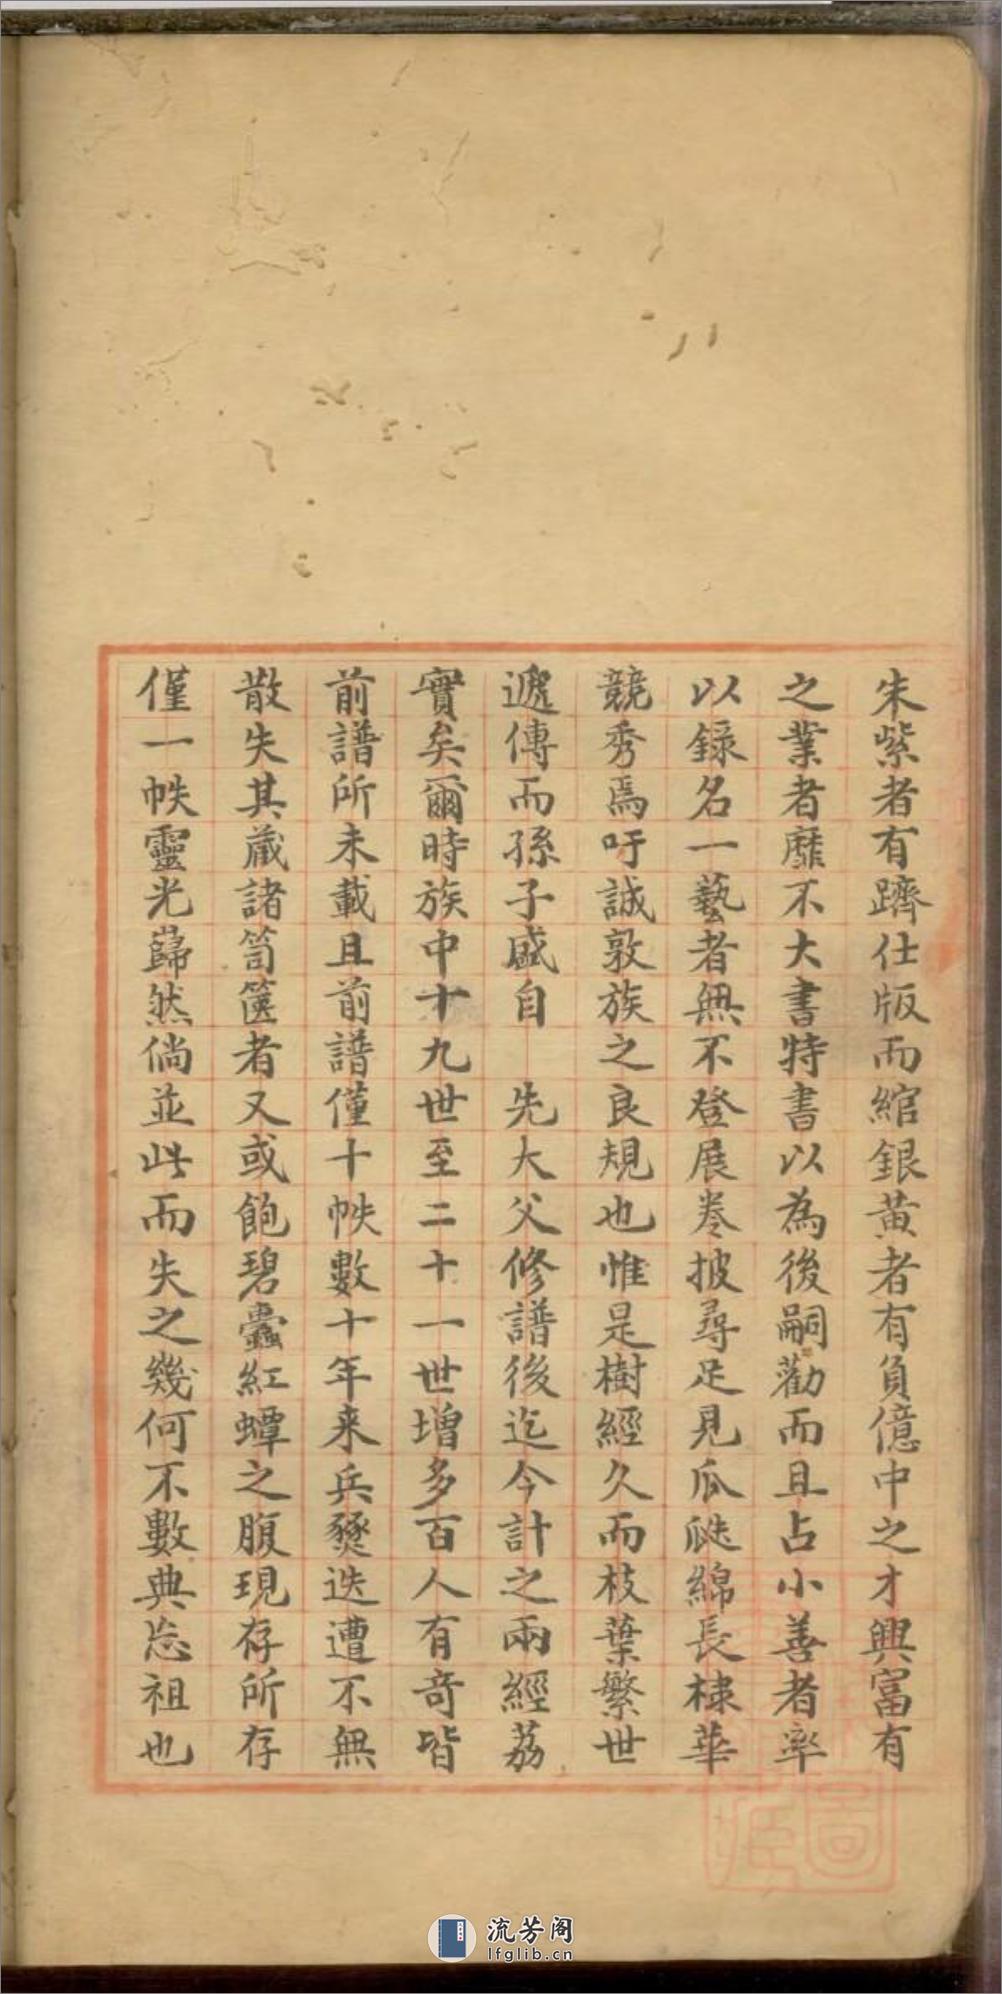 朱紫者有躋仕版而綰銀黃者有負億中之才興富有
之業者靡不大書特書以為後嗣勸而且占小善者率
以錄名一藝者無不登展卷披尋足見瓜瓞綿長棣華
競秀焉吁誠敦族之良規也惟是樹經久而枝葉繁世
遞傳而孫子盛自　先大父修譜後迄今計之兩經荔
實矣爾時族中十九世至二十一世增多百人有奇皆
前譜所未載且前譜僅十帙數十年来兵燹迭遭不無
散失其藏諸笥篋者又或飽碧蠹紅蟫之腹現存所存
僅一帙靈光巋然倘並此而失之幾何不數典忘祖也
流芳阁
lfglib.cn